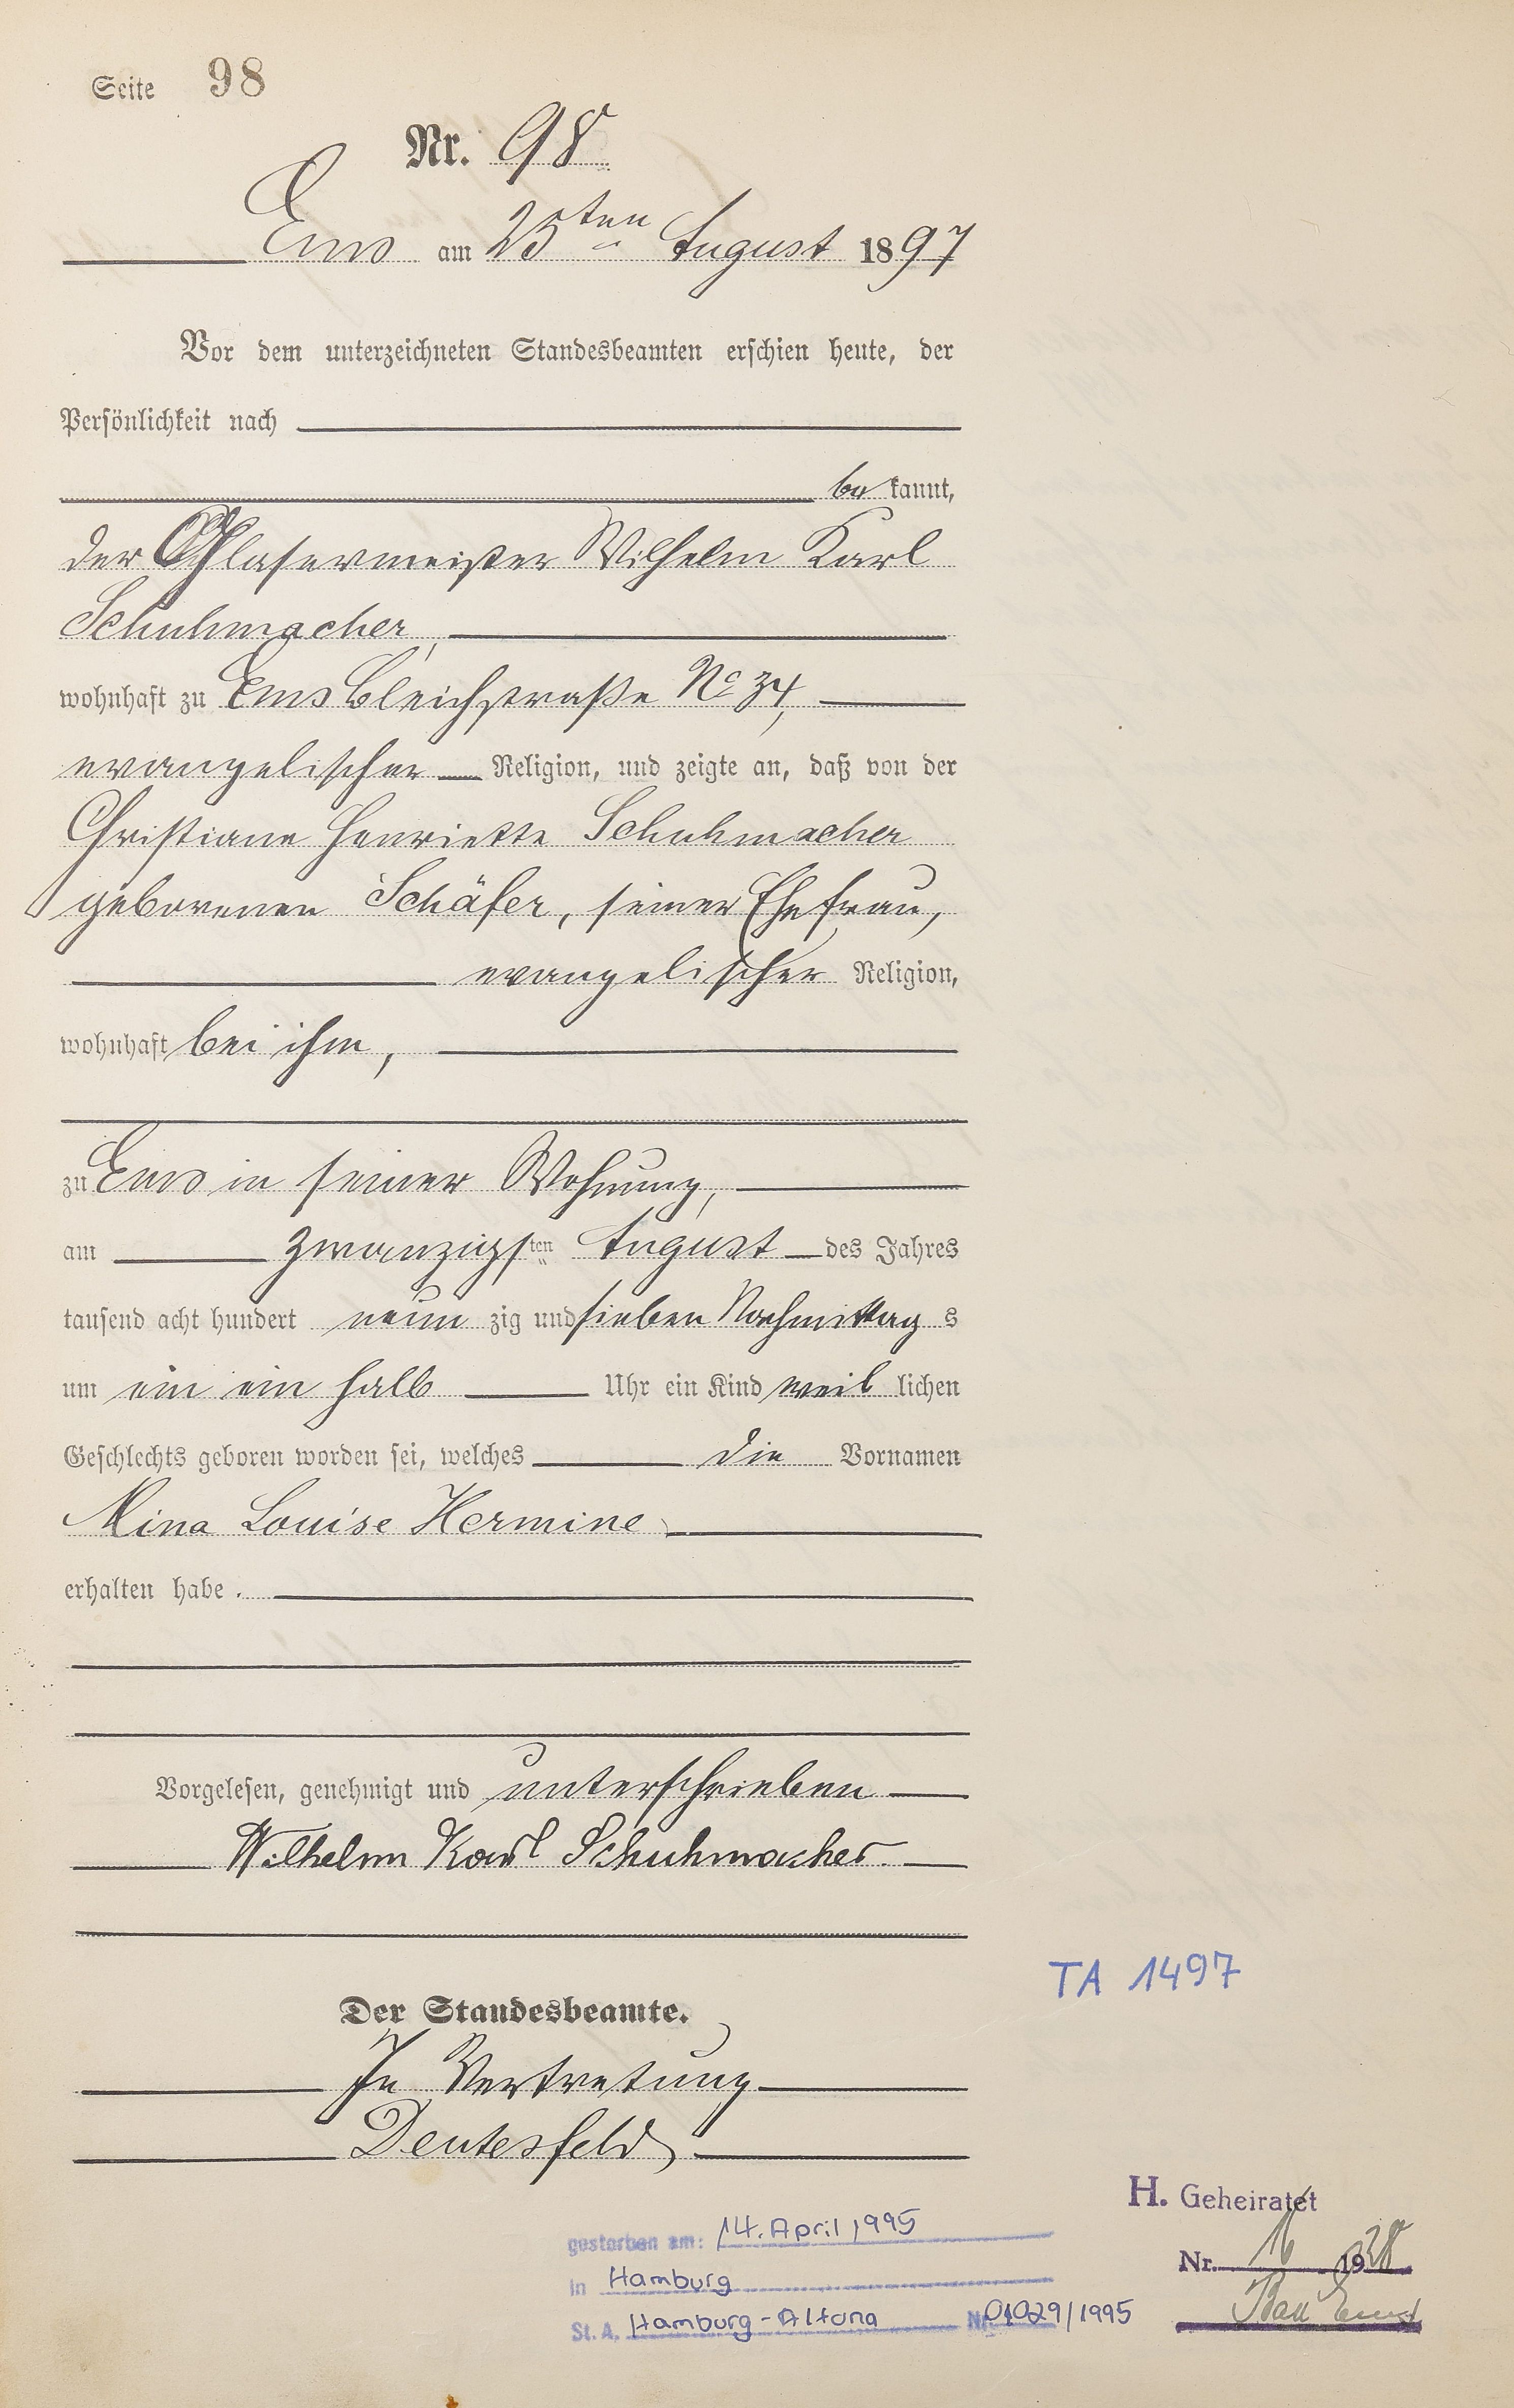 Seite 98
Nr. 98
Ems am 23ten August 1897
Vor dem unterzeichneten Standesbeamten erschien heute, der
Persönlichkeit nach
bekannt,
der Glasermeister Wilhelm Karl
Schuhmacher,
wohnhaft zu Ems Bleichstraße No 34,
evangelischer Religion, und zeigte an, daß von der
Christiane Henriette Schuhmacher
geborenen Schäfer, seiner Ehefrau,
evangelischer Religion,
wohnhaft bei ihm,
zu Ems in seiner Wohnung,
am zwanzigsten August des Jahres
tausend acht hundert neunzig und sieben Nachmittags
um ein ein halb Uhr ein Kind weiblichen
Geschlechts geboren worden sei, welches die Vornamen
Mina Louise Hermine
erhalten habe.
Vorgelesen, genehmigt und unterschrieben
Wilhelm Karl Schuhmacher.
TA 1497
Der Standesbeamte.
In Vertretung
Deutesfeld
H. Geheiratet
Nr. 16 1938
Bad Ems
gestorben am: 14. April 1995
in Hamburg
St. A. Hamburg-Altona Nr. 01029/1995